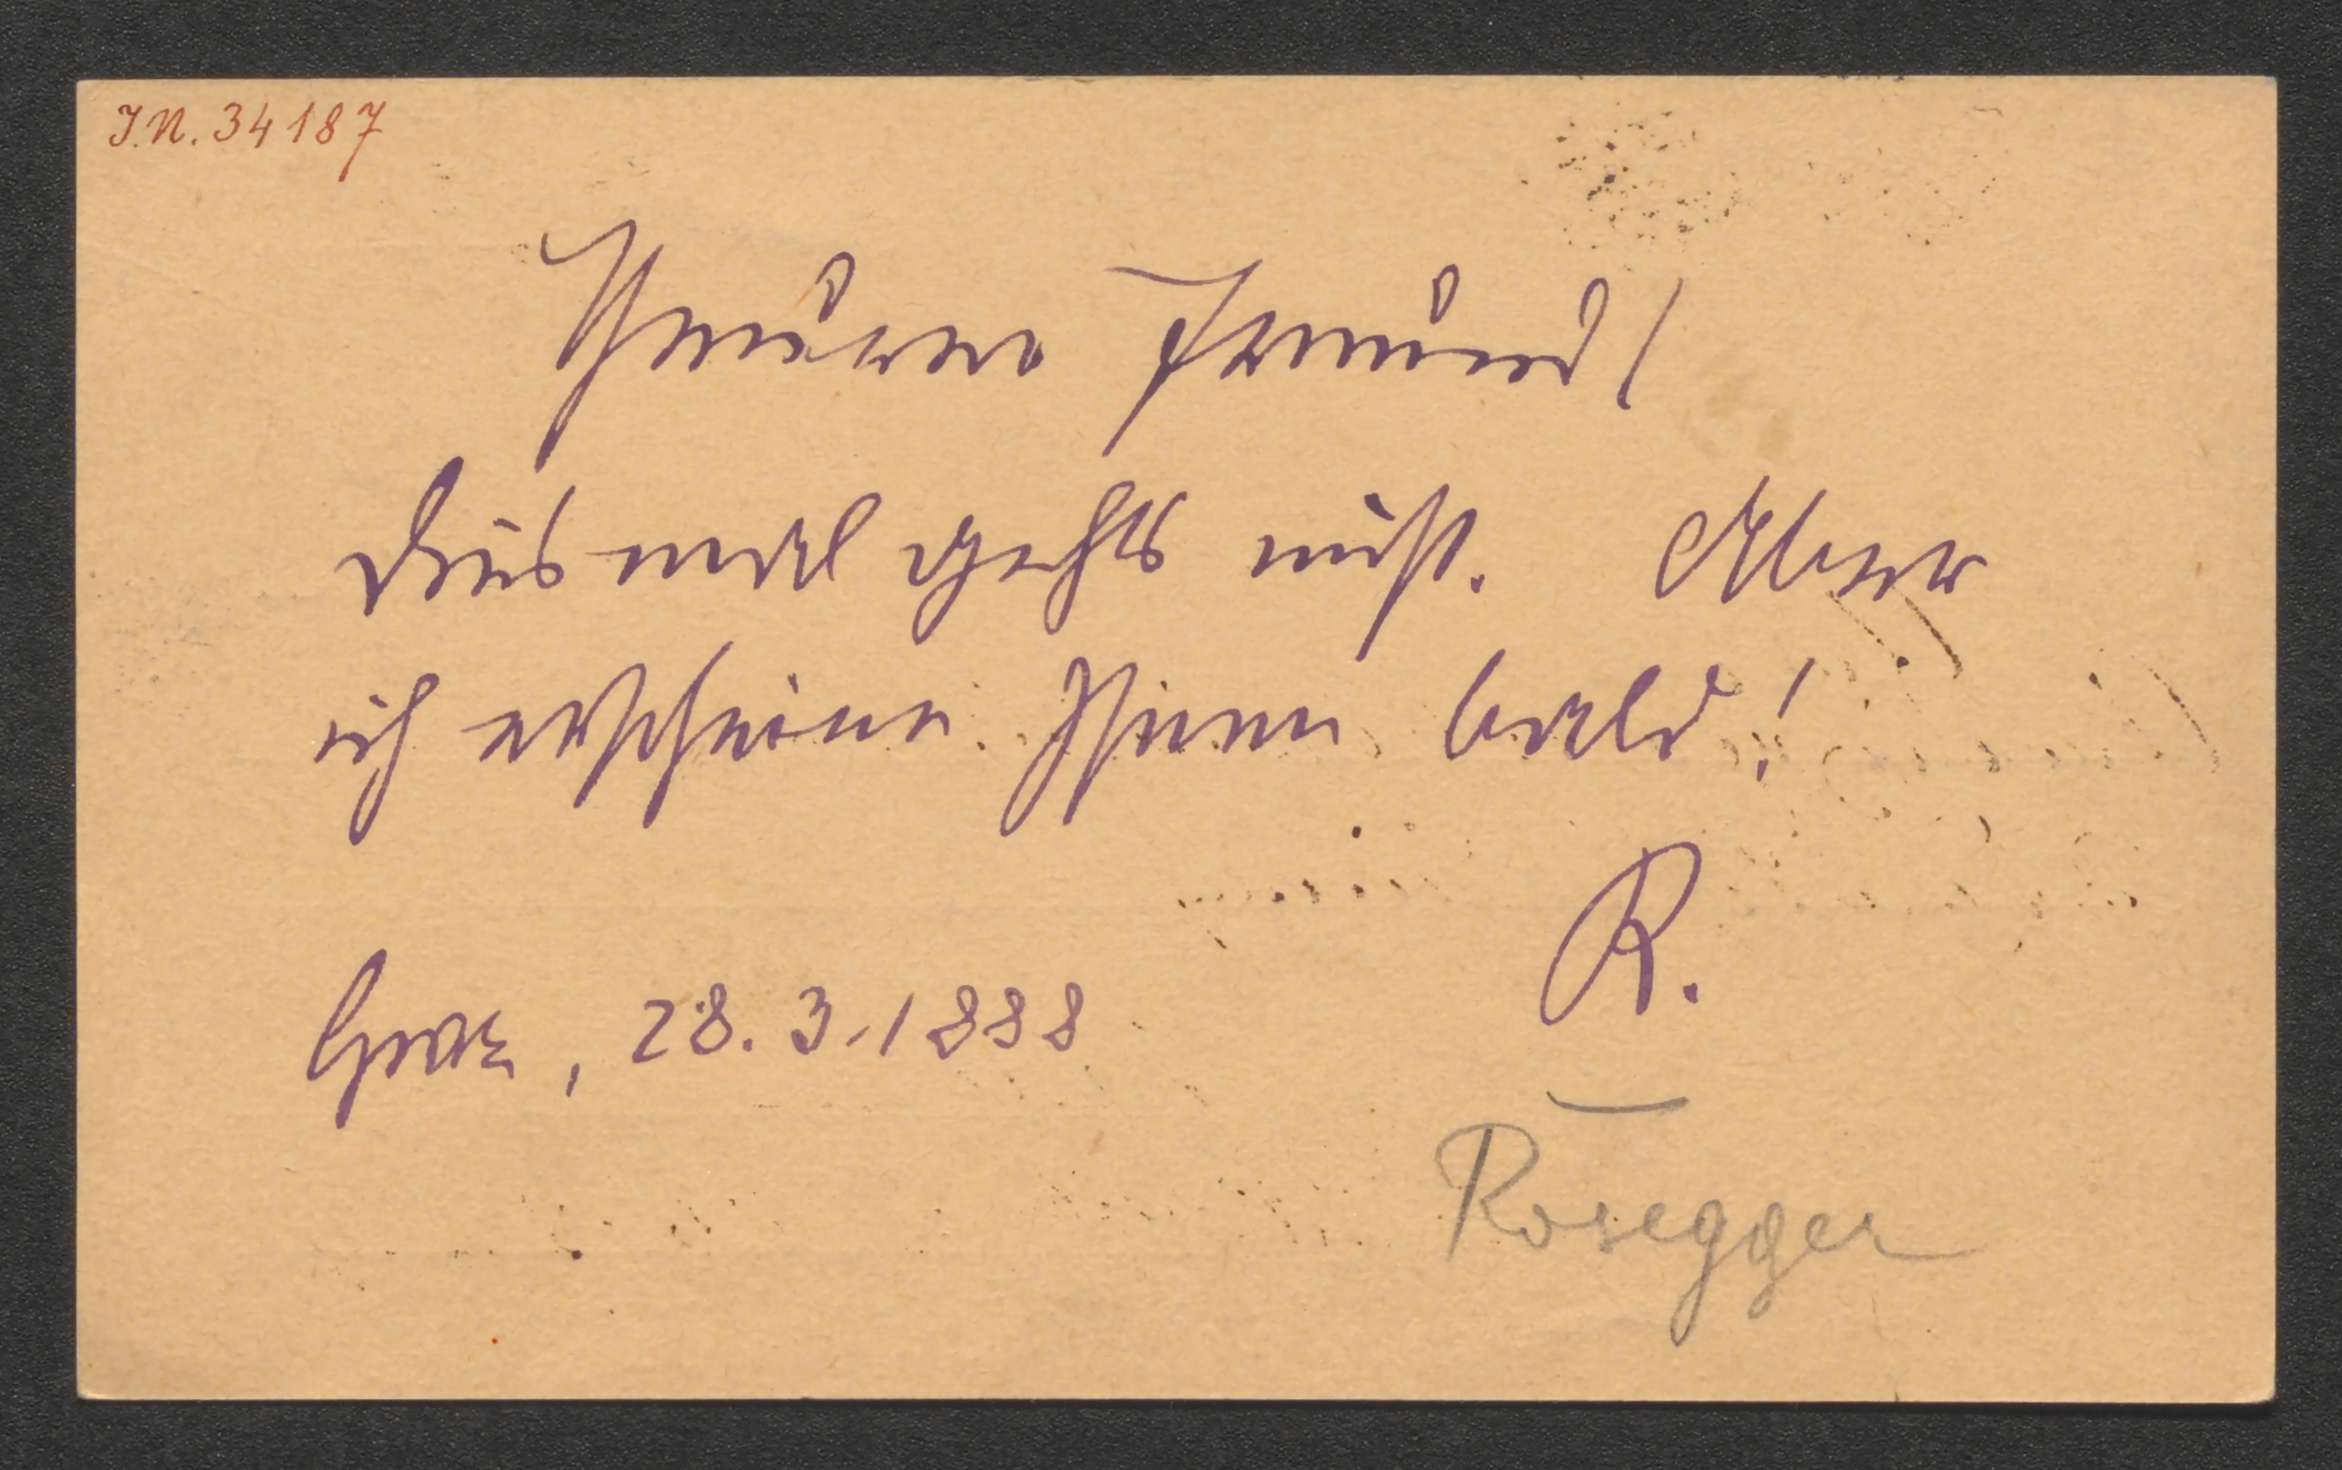 I.N. 34187
Theurer Freund!
Diesmal gehts nicht. Aber
ich erscheine Ihnen bald!
R.
Graz, 28. 3. 1888
Rosegger